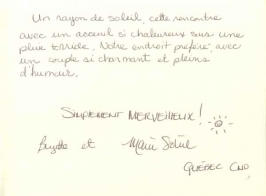 Un rayon de soleil, cette rencontre
avec un acceuil si chaleureux sous une
pluie torride. Notre endroit préféré, avec
un couple si charmant et pleins
d'humour.
SIMPLEMENT MERVEILLEUX!
Brigitte et Mario
QUÉBEC CND